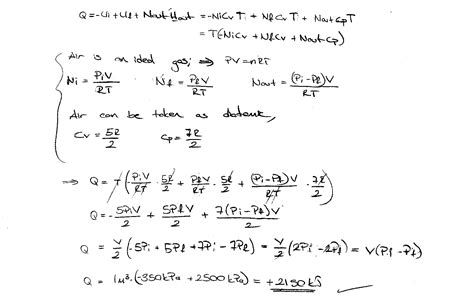 Q = -Ui + Uf + Nout Hout = -NiCvTi + NfCvT + NoutCpT
= T(-NiCv + NfCv + NoutCp)
Air is an ideal gas; ⇒ PV=nRT
Ni = PiV/RT Nf = PfV/RT Nout = (Pi-Pf)V/RT
Air can be taken as diatomic,
Cv = 5R/2 Cp = 7R/2
⇒ Q = T(-PiV/RT · 5R/2 + PfV/RT · 5R/2 + (Pi-Pf)V/RT · 7R/2)
Q = -5PiV/2 + 5PfV/2 + 7(Pi-Pf)V/2
Q = V/2 (-5Pi + 5Pf + 7Pi - 7Pf) = V/2 (2Pi - 2Pf) = V(Pi - Pf)
Q = 1m³·(-350kPa + 2500kPa) = +2150kJ